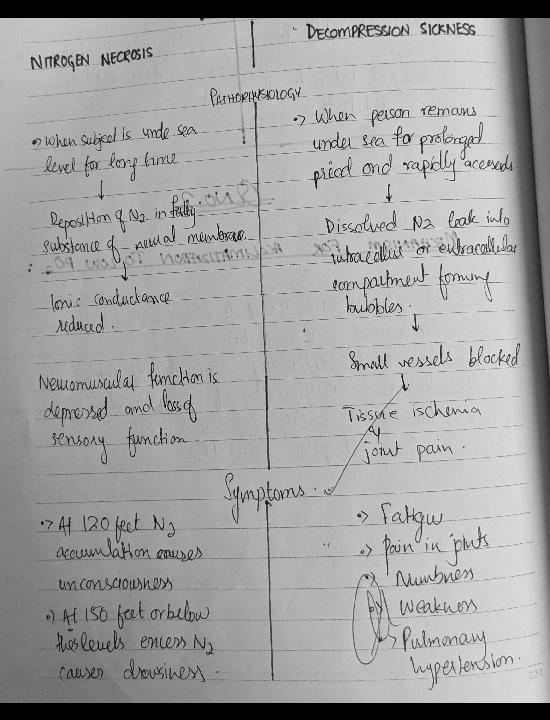 NITROGEN NECROSIS
DECOMPRESSION SICKNESS
PATHOPHYSIOLOGY
When subject is unde sea
level for long time
↓
Deposition of N2 in fatty
substance of neural membrane.
↓
Ionic conductance
reduced.
Neuromuscular function is
depressed and loss of
sensory function.
When person remans
under sea for prolonged
priod and rapidly accends
↓
Dissolved N2 leak into
intracellur or extracellular
compartment forming
bubbles.
↓
Small vessels blocked
↓
Tissue ischemia
&
joint pain.
Symptoms.
At 120 feet N2
accumulation causes
unconsciousness
At 150 feet or below
this levels excess N2
causes drowsiness.
Fatigue
Pain in joints
Numbness
Weakness
Pulmonary
hypertension.